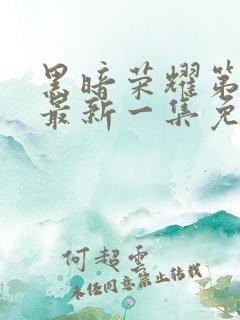 黑暗荣耀第
最新一集免
何超云
未经同意禁止转载